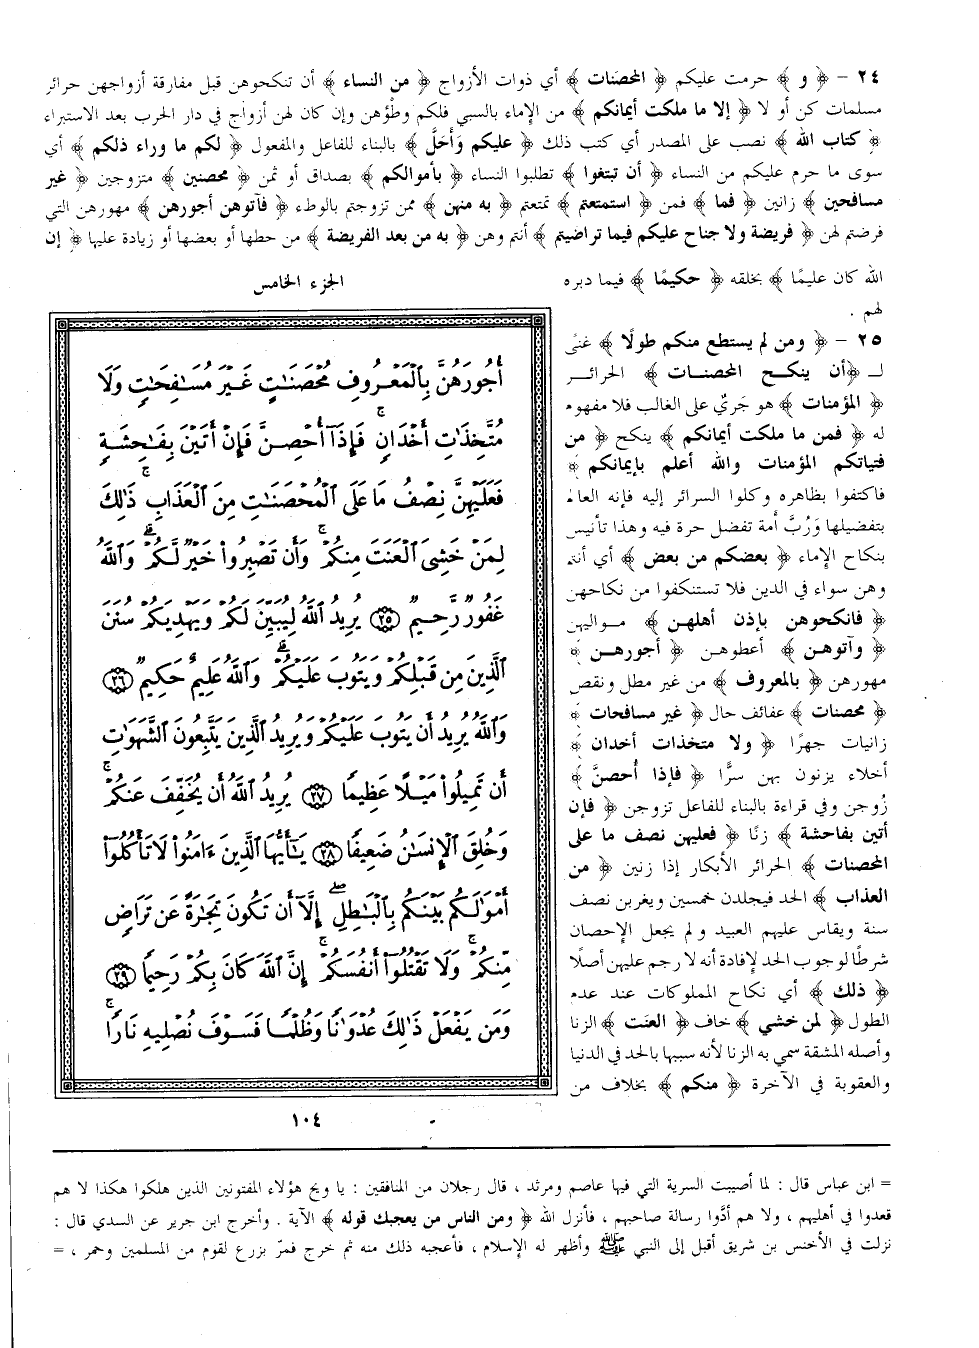 ٢٤ - ﴿ و ﴾ حرمت عليكم ﴿ المحصَنات ﴾ أي ذوات الأزواج ﴿ من النساء ﴾ أن تنكحوهن قبل مفارقة أزواجهن حرائر
مسلمات كن أو لا ﴿ إلا ما ملكت أيمانكم ﴾ من الإماء بالسبي فلكم وطؤهن وإن كان لهن أزواج في دار الحرب بعد الاستبراء
﴿ كتاب الله ﴾ نصب على المصدر أي كتب ذلك ﴿ عليكم وَأَحَلَّ ﴾ بالبناء للفاعل والمفعول ﴿ لكم ما وراء ذلكم ﴾ أي
سوى ما حرم عليكم من النساء ﴿ أن تبتغوا ﴾ تطلبوا النساء ﴿ بأموالكم ﴾ بصداق أو ثمن ﴿ محصنين ﴾ متزوجين ﴿ غير
مسافحين ﴾ زانين ﴿ فما ﴾ فمن ﴿ استمتعتم ﴾ تمتعتم ﴿ به منهن ﴾ ممن تزوجتم بالوطء ﴿ فآتوهن أجورهن ﴾ مهورهن التي
فرضتم لهن ﴿ فريضة ولا جناح عليكم فيما تراضيتم ﴾ أنتم وهن ﴿ به من بعد الفريضة ﴾ من حطها أو بعضها أو زيادة عليها ﴿ إن
الله كان عليمًا ﴾ بخلقه ﴿ حكيمًا ﴾ فيما دبره
لهم .
٢٥ - ﴿ ومن لم يستطع منكم طولًا ﴾ غنى
لـ ﴿أن ينكح المحصنات ﴾ الحرائر
﴿ المؤمنات ﴾ هو جَريٌ على الغالب فلا مفهوم
له ﴿ فمن ما ملكت أيمانكم ﴾ ينكح ﴿ من
فتياتكم المؤمنات والله أعلم بإيمانكم ﴾
فاكتفوا بظاهره وكلوا السرائر إليه فإنه العالم
بتفضيلها وَرُبَّ أَمة تفضل حرة فيه وهذا تأنيس
بنكاح الإماء ﴿ بعضكم من بعض ﴾ أي أنتم
وهن سواء في الدين فلا تستنكفوا من نكاحهن
﴿ فانكحوهن بإذن أهلهن ﴾ مواليهن
﴿ وآتوهن ﴾ أعطوهن ﴿ أجورهن ﴾
مهورهن ﴿ بالمعروف ﴾ من غير مطل ونقص
﴿ محصنات ﴾ عفائف حال ﴿ غير مسافحات ﴾
زانيات جهرًا ﴿ ولا متخذات أخدان ﴾
أخلاء يزنون بهن سرًّا ﴿ فإذا أُحصنَّ ﴾
زُوجن وفي قراءة بالبناء للفاعل تزوجن ﴿ فإن
أتين بفاحشة ﴾ زنًا ﴿ فعليهن نصف ما على
المحصنات ﴾ الحرائر الأبكار إذا زنين ﴿ من
العذاب ﴾ الحد فيجلدن خمسين ويغربن نصف
سنة ويقاس عليهم العبيد ولم يجعل الإحصان
شرطًا لوجوب الحد لإفادة أنه لا رجم عليهن أصلًا
﴿ ذلك ﴾ أي نكاح المملوكات عند عدم
الطول ﴿ لمن خشي ﴾ خاف ﴿ العنت ﴾ الزنا
وأصله المشقة سمي به الزنا لأنه سببها بالحد في الدنيا
والعقوبة في الآخرة ﴿ منكم ﴾ بخلاف من
الجزء الخامس
أُجُورَهُنَّ بِالْمَعْرُوفِ مُحْصَنَٰتٍ غَيْرَ مُسَٰفِحَٰتٍ وَلَا
مُتَّخِذَٰتِ أَخْدَانٍ ۚ فَإِذَآ أُحْصِنَّ فَإِنْ أَتَيْنَ بِفَٰحِشَةٍ
فَعَلَيْهِنَّ نِصْفُ مَا عَلَى الْمُحْصَنَٰتِ مِنَ الْعَذَابِ ۚ ذَٰلِكَ
لِمَنْ خَشِىَ الْعَنَتَ مِنكُمْ ۚ وَأَن تَصْبِرُوا۟ خَيْرٌ لَّكُمْ ۗ وَاللَّهُ
غَفُورٌ رَّحِيمٌ ٢٥ يُرِيدُ اللَّهُ لِيُبَيِّنَ لَكُمْ وَيَهْدِيَكُمْ سُنَنَ
الَّذِينَ مِن قَبْلِكُمْ وَيَتُوبَ عَلَيْكُمْ ۗ وَاللَّهُ عَلِيمٌ حَكِيمٌ ٢٦
وَاللَّهُ يُرِيدُ أَن يَتُوبَ عَلَيْكُمْ وَيُرِيدُ الَّذِينَ يَتَّبِعُونَ الشَّهَوَٰتِ
أَن تَمِيلُوا۟ مَيْلًا عَظِيمًا ٢٧ يُرِيدُ اللَّهُ أَن يُخَفِّفَ عَنكُمْ ۚ
وَخُلِقَ الْإِنسَٰنُ ضَعِيفًا ٢٨ يَٰٓأَيُّهَا الَّذِينَ ءَامَنُوا۟ لَا تَأْكُلُوٓا۟
أَمْوَٰلَكُم بَيْنَكُم بِالْبَٰطِلِ إِلَّآ أَن تَكُونَ تِجَٰرَةً عَن تَرَاضٍ
مِّنكُمْ ۚ وَلَا تَقْتُلُوٓا۟ أَنفُسَكُمْ ۚ إِنَّ اللَّهَ كَانَ بِكُمْ رَحِيمًا ٢٩
وَمَن يَفْعَلْ ذَٰلِكَ عُدْوَٰنًا وَظُلْمًا فَسَوْفَ نُصْلِيهِ نَارًا ۚ
١٠٤
= ابن عباس قال : لما أصيبت السرية التي فيها عاصم ومرثد ، قال رجلان من المنافقين : يا ويح هؤلاء المفتونين الذين هلكوا هكذا لا هم
قعدوا في أهليهم ، ولا هم أدَّوا رسالة صاحبهم ، فأنزل الله ﴿ ومن الناس من يعجبك قوله ﴾ الآية . وأخرج ابن جرير عن السدي قال :
نزلت في الأخنس بن شريق أقبل إلى النبي ﷺ وأظهر له الإسلام ، فأعجبه ذلك منه ثم خرج فمرّ بزرع لقوم من المسلمين وحمر ، =